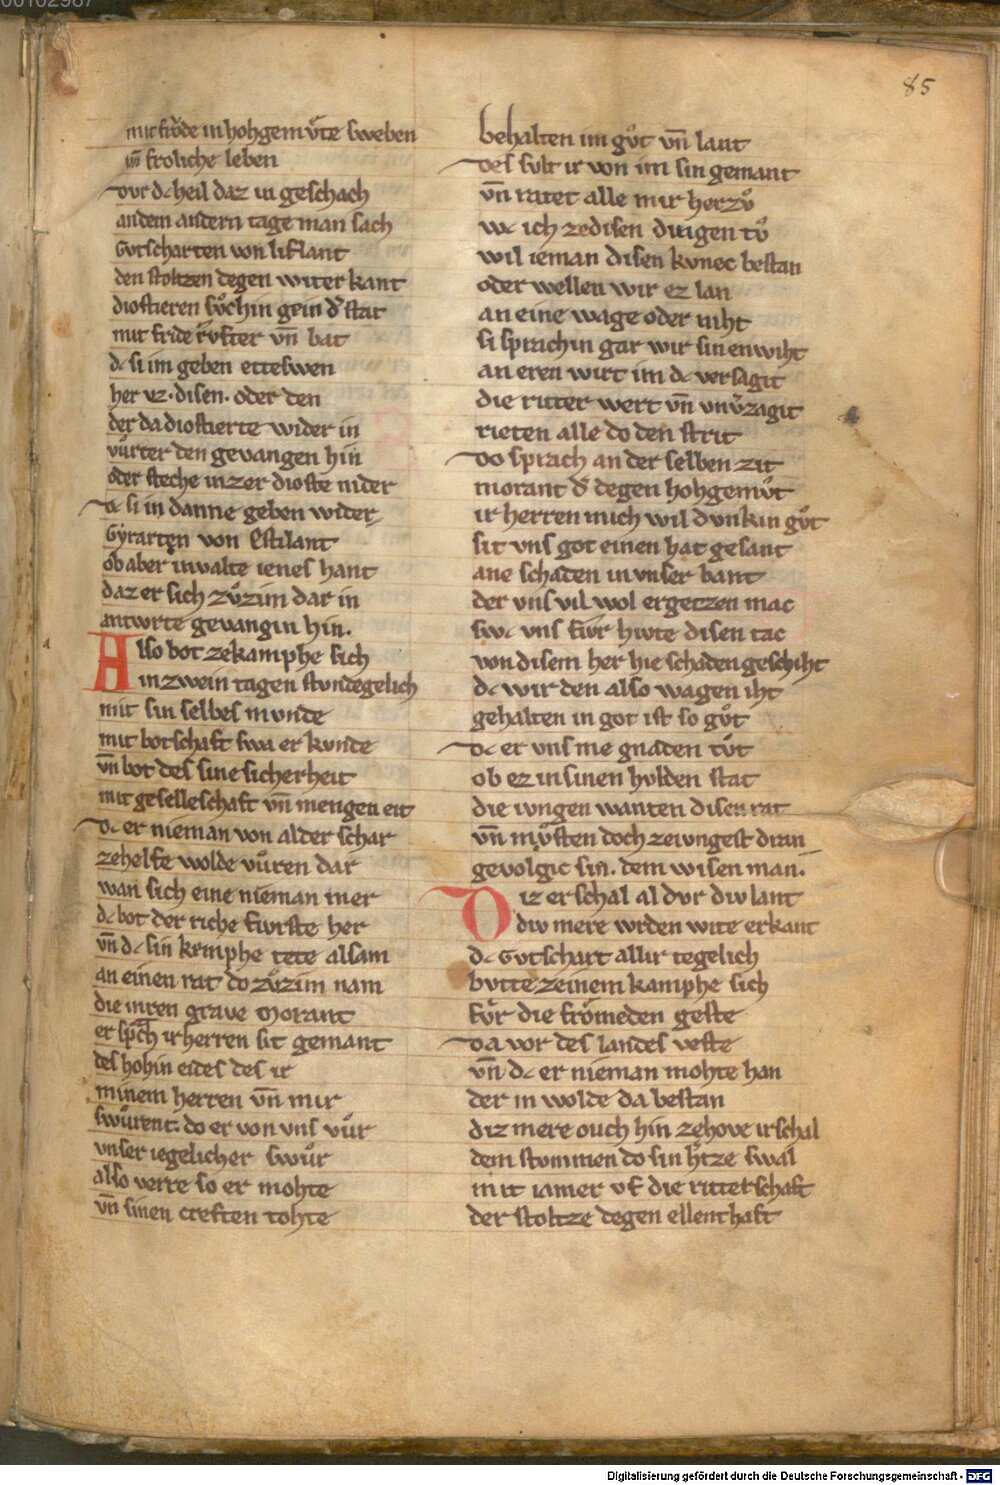 85
mit frͮde in hohgemͤte sweben
vn̄ froliche leben
dvr dc heil daz in geschach
andem andern tage man sach
Gvtscharten von liflant
den stoltzen degen witer kant
diostieren sͦchin gein dˢ stat
mit fride rͮfter vn̄ bat
dc si im geben etteswen
her vz· disen· oder den
der da diostierte wider in
vͤrter den gevangen hin
oder steche in zer dioste nider
dc si in danne geben wider
Gyrarten von Estilant
ob aber in valte ienes hant
daz er sich zͦzim dar in
antwrte gevangin hin.
Also bot zekamphe sich
in zwein tagen stvndegelich
mit sin selbes mvnde
mit botschaft swa er kvnde
vn̄ bot des sine sicherheit
mit geselleschaft vn̄ mengen eit
dc er nieman von al der schar
zehelfe wolde vͤren dar
wan sich eine nieman mer
dc bot der riche fvrste her
vn̄ dc sin kemphe tete alsam
an einen rat do zͦzim nam
die inren grave Morant
er sp̄ch ir herren sit gemant
des hohin eides des ir
minem herren vn̄ mir
swͦrent· do er von vns vͦr
vnser iegelicher swͦr
also verre so er mohte
vn̄ sinen creften tohte
behalten im gͦt vn̄ lant
des svlt ir von im sin gemant
vn̄ ratet alle mir herzͦ
wc ich zedisen dingen tͦ
wil ieman disen kvnec bestan
oder wellen wir ez lan
an eine wage oder niht
si sprachin gar wir sin enwiht
an eren wirt im dc versagit
die ritter wert vn̄ vnvˢzagit
rieten alle do den strit
do sprach an der selben zit
morant dˢ degen hohgemͦt
ir herren mich wil dvnkin gͦt
sit vns got einen hat gesant
ane schaden in vnser bant
der vns vil wol ergetzen mac
swc vns fvr hivte disen tac
von disem her hie schaden geschiht
dc wir den also wagen iht
gehalten in got ist so gͦt
dc er vns me gnaden tͦt
ob ez in sinen hvlden stat
die ivngen wanten disen rat
vn̄ mͦsten doch zeivngest dran
gevolgic sin. dem wisen man·
Diz erschal al dvr div lant
div mere wrden wite erkant
dc Gvtschart allir tegelich
bvtte zeinem kamphe sich
fͤr die frͤmeden geste
da vor des landes veste
vn̄ dc er nieman mohte han
der in wolde da bestan
diz mere ouch hin zehove irschal
dem stvmmen do sin hˢtze swal
mit iamer vf die ritterschaft
der stoltze degen ellenthaft
Digitalisierung gefördert durch die Deutsche Forschungsgemeinschaft - DFG